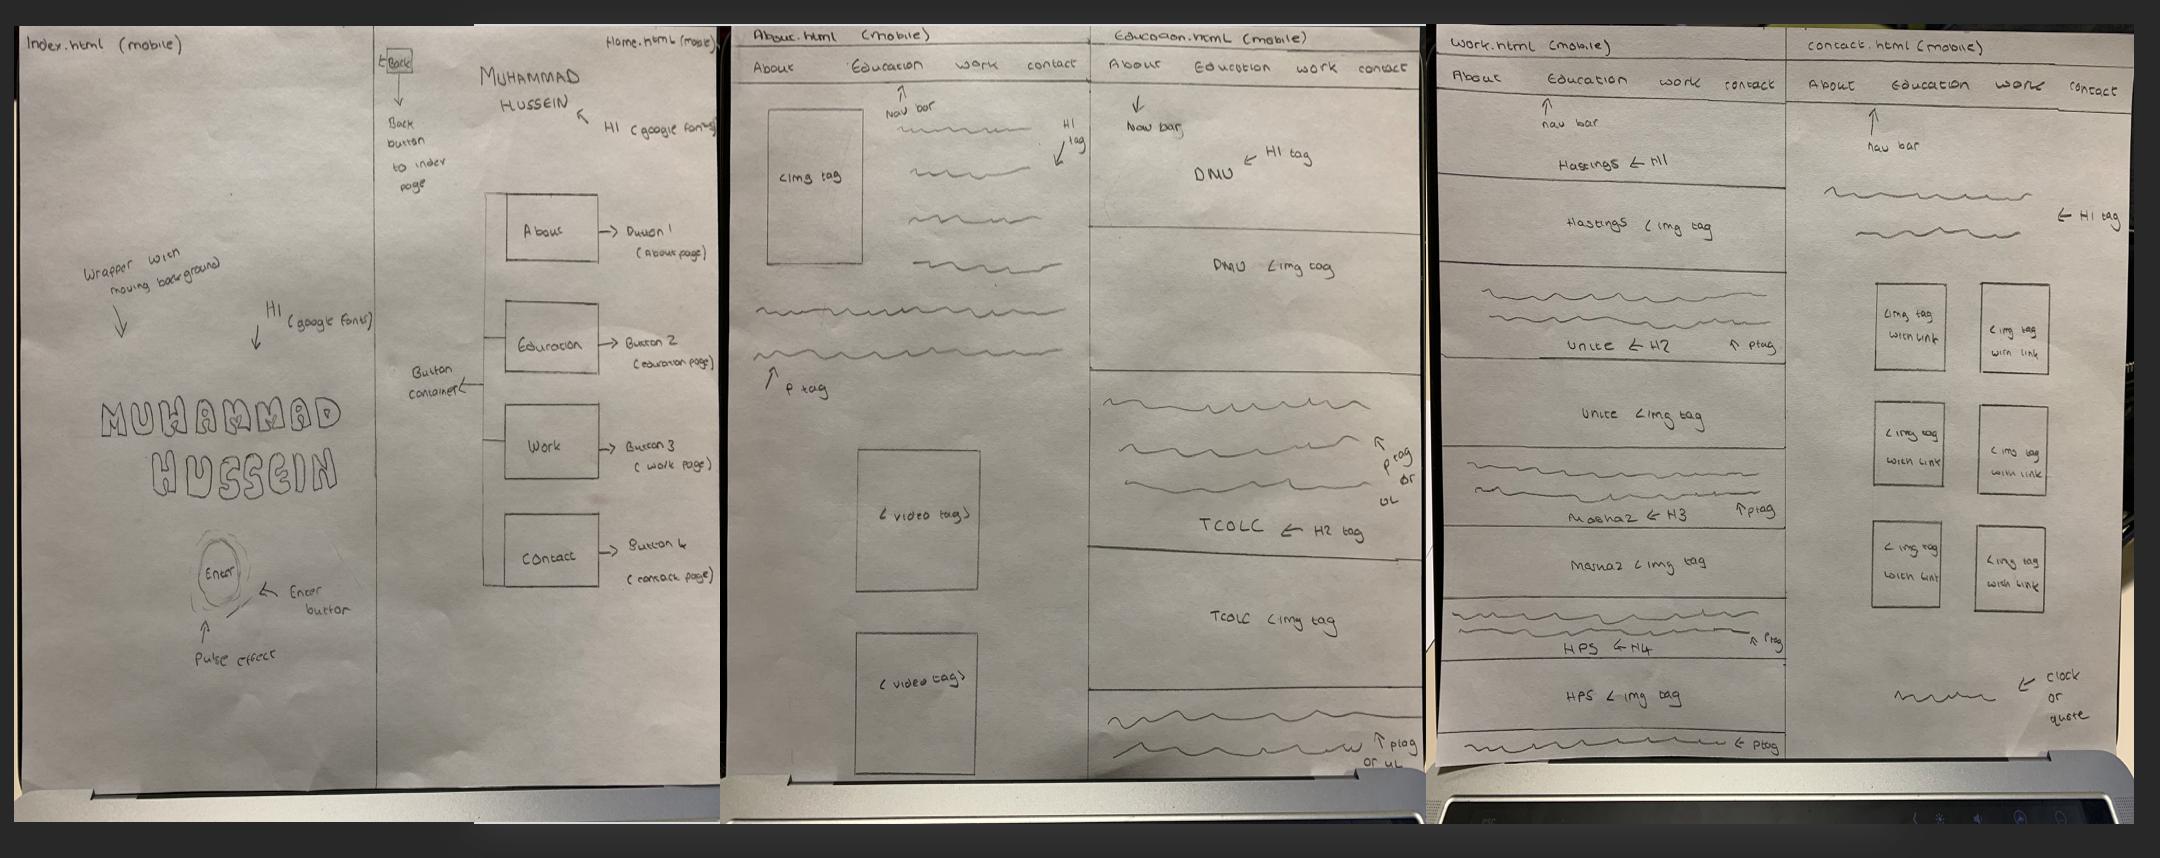 Index.html (mobile)
Wrapper with
moving background
H1
(google fonts)
MUHAMMAD
HUSSEIN
Enter
Enter
button
Pulse effect
Back
Back
button
to index
page
Home.html (mobile)
MUHAMMAD
HUSSEIN
H1 (google fonts)
Button
container
About
Button 1
(About page)
Education
Button 2
(education page)
Work
Button 3
(work page)
Contact
Button 4
(contact page)
About.html (mobile)
About Education work contact
Nav bar
<img tag
H1
tag
P tag
<video tag>
<video tag>
Education.html (mobile)
About Education work contact
Nav bar
DMU
H1 tag
DMU <img tag
p tag
or
UL
TCOLC
H2 tag
TCOLC <img tag
p tag
or UL
work.html (mobile)
About Education work contact
nav bar
Hastings H1
Hastings <img tag
Unite H2
p tag
Unite <img tag
H3
p tag
<img tag
HPS H4
p tag
HPS <img tag
p tag
contact.html (mobile)
About Education work contact
nav bar
H1 tag
<img tag
with link
<img tag
with link
<img tag
with link
<img tag
with link
<img tag
with link
<img tag
with link
clock
or
quote
esc